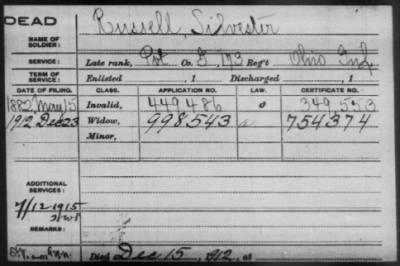 DEAD
Russell, Silvester
NAME OF SOLDIER:
SERVICE: Late rank, Pvt Co. G, 173 Reg't Ohio Inf.
TERM OF SERVICE: Enlisted , 1 Discharged , 1
DATE OF FILING. CLASS. APPLICATION NO. LAW. CERTIFICATE NO.
1882 May 15 Invalid, 449486 349,553
1912 Dec 23 Widow, 998543 754374
Minor,
ADDITIONAL SERVICES:
7/12-1915
REMARKS:
Died Dec 15, 1912, at